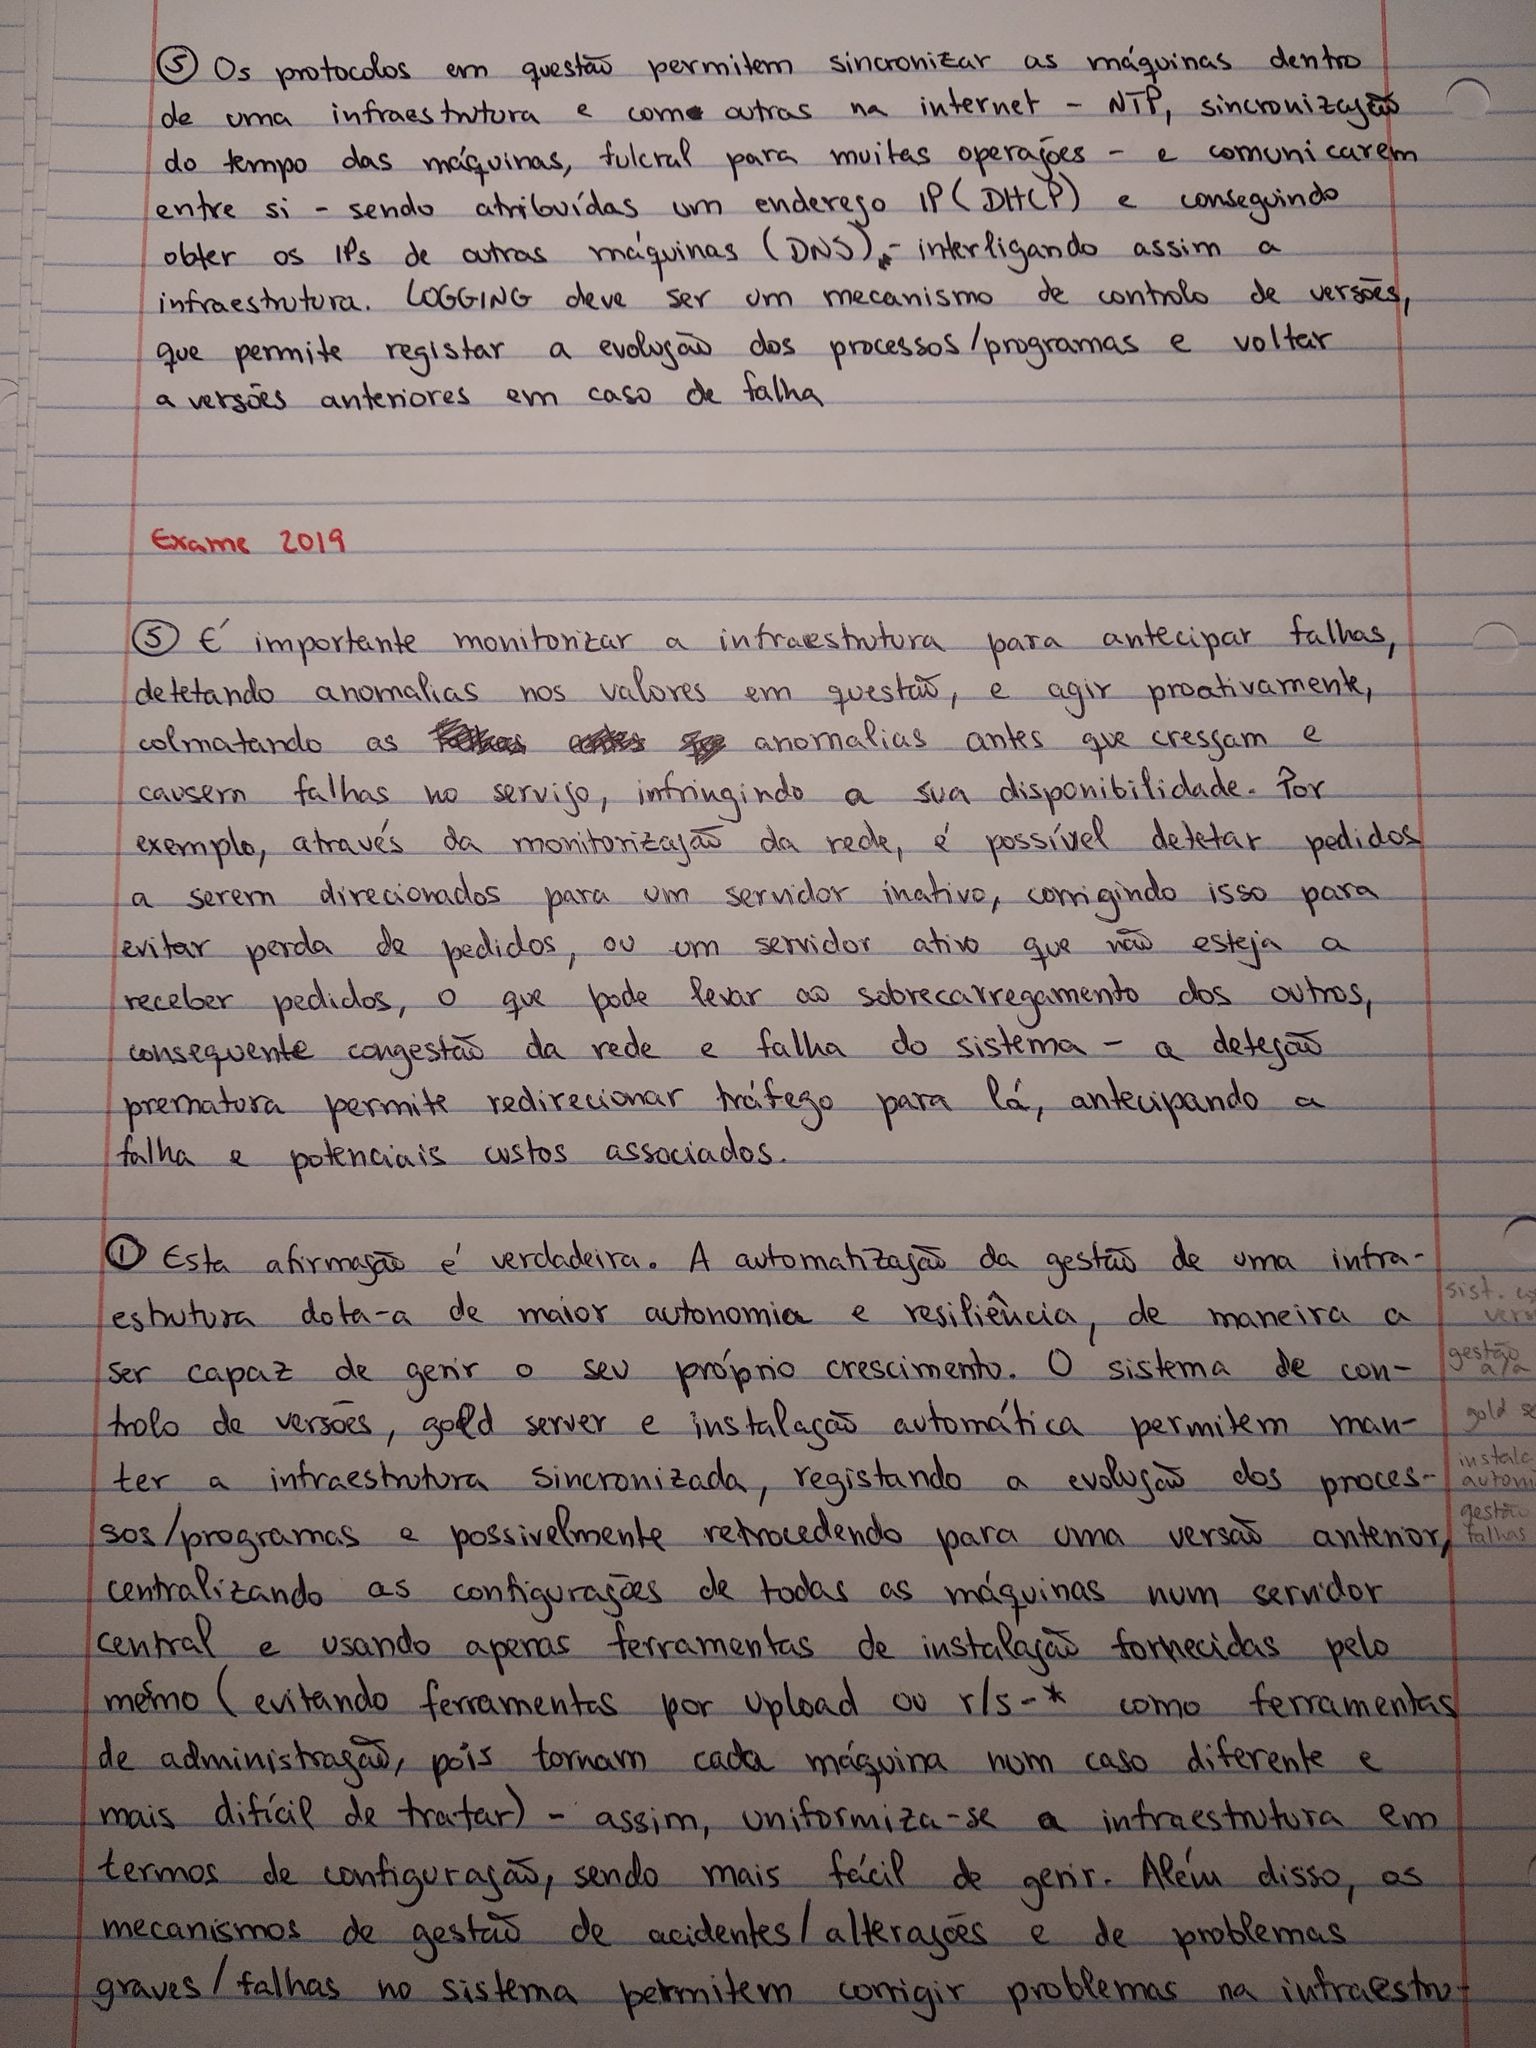 ⑤ Os protocolos em questão permitem sincronizar as máquinas dentro
de uma infraestrutura e como outras na internet - NTP, sincronização
do tempo das máquinas, fulcral para muitas operações - e comunicarem
entre si - sendo atribuídas um endereço IP (DHCP) e conseguindo
obter os IPs de outras máquinas (DNS) - interligando assim a
infraestrutura. LOGGING deve ser um mecanismo de controlo de versões,
que permite registar a evolução dos processos/programas e voltar
a versões anteriores em caso de falha
Exame 2019
⑤ É importante monitorizar a infraestrutura para antecipar falhas,
detetando anomalias nos valores em questão, e agir proativamente,
colmatando as anomalias antes que cresçam e
causem falhas no serviço, infringindo a sua disponibilidade. Por
exemplo, através da monitorização da rede, é possível detetar pedidos
a serem direcionados para um servidor inativo, corrigindo isso para
evitar perda de pedidos, ou um servidor ativo que não esteja a
receber pedidos, o que pode levar ao sobrecarregamento dos outros,
consequente congestão da rede e falha do sistema - a deteção
prematura permite redirecionar tráfego para lá, antecipando a
falha e potenciais custos associados.
① Esta afirmação é verdadeira. A automatização da gestão de uma infra-
estrutura dota-a de maior autonomia e resiliência, de maneira a
ser capaz de gerir o seu próprio crescimento. O sistema de con-
trolo de versões, gold server e instalação automática permitem man-
ter a infraestrutura sincronizada, registando a evolução dos proces-
sos/programas e possivelmente retrocedendo para uma versão anterior,
centralizando as configurações de todas as máquinas num servidor
central e usando apenas ferramentas de instalação fornecidas pelo
mesmo (evitando ferramentas por upload ou r/s-* como ferramentas
de administração, pois tornam cada máquina num caso diferente e
mais difícil de tratar) - assim, uniformiza-se a infraestrutura em
termos de configuração, sendo mais fácil de gerir. Além disso, os
mecanismos de gestão de acidentes/alterações e de problemas
graves/falhas no sistema permitem corrigir problemas na infraestru-
sist.
gestão
a/a
gold
gestão
falhas